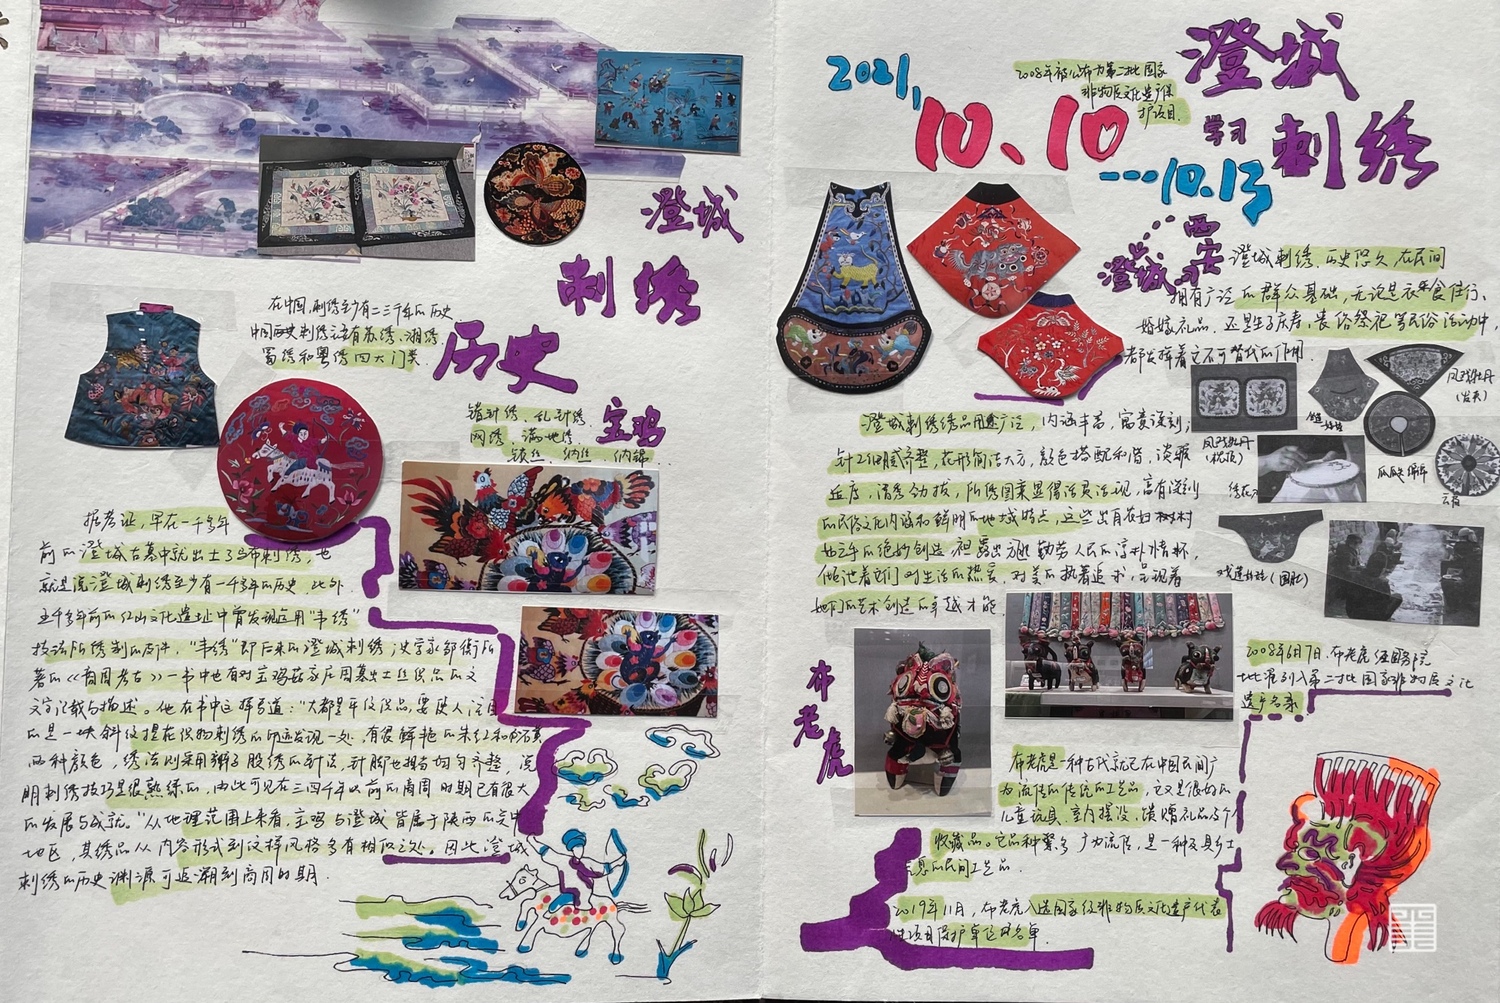 澄城
刺绣
历史
在中国,刺绣至少有二三千年的历史.
中国历史刺绣还有苏绣、湘绣
蜀绣和粤绣四大门类.
宝鸡
错针绣、乱针绣、
网绣、满地绣、
锁丝、纳丝、纳锦
据考证,早在一千多年
前的澄城古墓中就出土了当布刺绣,也
就是说澄城刺绣至少有一千多年的历史.此外
五千多年前的仰山文化遗址中曾发现运用"丰绣"
技法所绣制的皮件,"丰绣"即后来的澄城刺绣,史学家邹衡所
著的《商周考古》一书中也有对宝鸡茹家庄周墓出土丝织品的文
文字记载与描述。他在书中这样写道:"大都是平纹织品,要使人注目
的是一块斜纹提花织物刺绣的印迹发现一处,有很鲜艳的朱红和石黄
两种颜色,绣法则采用辫子股绣的针法,针脚也相当均匀齐整,说
明刺绣技巧是很熟练的,由此可见在三四千年以前的商周时期已有很大
的发展与成就。"从地理范围上来看,宝鸡与澄城皆属于陕西的关中
地区,其绣品从内容形式到纹样风格多有相似之处。因此澄城
刺绣的历史渊源可追溯到商周时期.
2021,
10.10
---10.13
2008年被公布为第二批国家
非物质文化遗产保
护项目.
澄城
学习
刺绣
西安
澄城
澄城刺绣,历史悠久,在民间
拥有广泛的群众基础,无论是衣食住行、
婚嫁礼品、还是生子庆寿,丧俗祭祀等民俗活动中,
都发挥着它不可替代的作用.
澄城刺绣绣品用途广泛,内涵丰富,寓意深刻,
针工细腻齐整,花形简洁大方,颜色搭配和谐,淡雅
适度,清秀劲拔,所绣图案显得活灵活现,富有深刻
的民俗文化内涵和鲜明的地域特点,这些出自农村
妇女手的绝妙创造,袒露出勤劳人民的淳朴情怀,
倾注着它们对生活的热爱,对美的执着追求,呈现着
她们的艺术创造的卓越才能.
凤戏牡丹
(枕顶)
凤戏牡丹
云肩
戏莲娃娃(围肚)
布老虎
2008年6月7日,布老虎经国务院
批准列入第二批国家非物质文化
遗产名录
布老虎是一种古代就已在中国民间广
为流传的传统的工艺品,它又是很好的
儿童玩具,室内摆设,馈赠礼品及个人
收藏品。它品种繁多,广为流传,是一种极具乡土
气息的民间工艺品.
2019年11月,布老虎入选国家级非物质文化遗产代表
性项目保护单位名单.